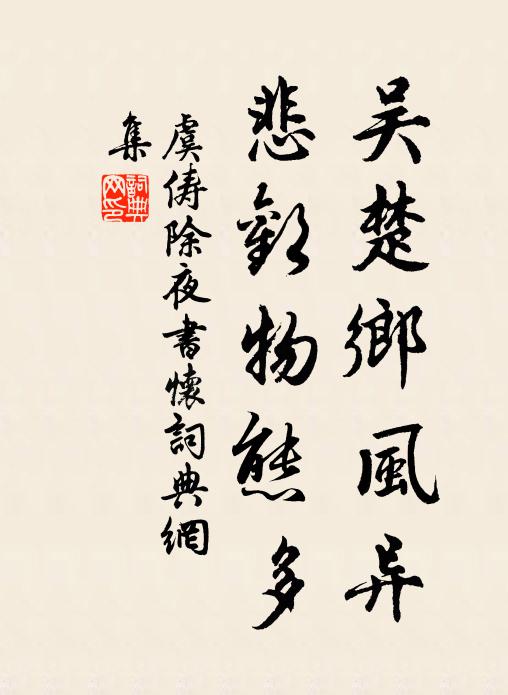 吴楚鄉風异
悲歡物態多
虞儔除夜書懷詞典網
集
詞典網印